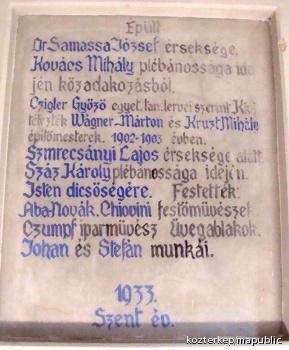 Épült
Dr Samassa József érseksége,
Kovács Mihály plébánossága ide
jén közadakozásból.
Czigler Győző egyet. tan. tervei szerint Ké
Wágner Márton és Kruzt Mihály
építőmesterek. 1902-1903 évben.
Szmrecsányi Lajos érseksége alatt
Száz Károly plébánossága idején.
Isten dicsőségére. Festették:
Aba-Novák. Chiovini festőművészek.
Czumpf iparművész Üvegablakok.
Johan és Stefán munkái.
1933.
Szent év.
kozterkep/mapublic